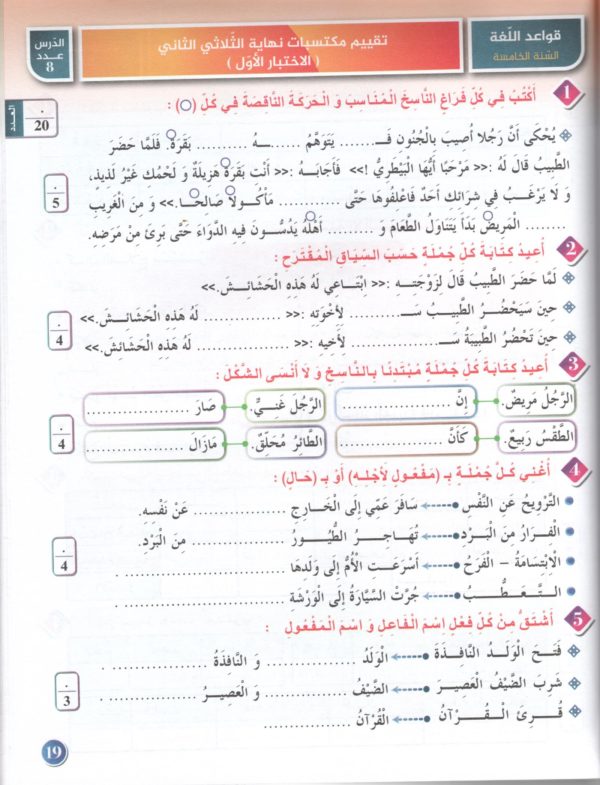 قواعد اللّغة
السّنة الخامسة
تقييم مكتسبات نهاية الثّلاثي الثّاني
( الاختبار الأوّل )
الدّرس
عــدد
8
العــدد
20
1 أَكْتُبُ فِي كُلِّ فَرَاغٍ النَّاسِخَ الْمُنَاسِبَ وَ الْحَرَكَةَ النَّاقِصَةَ فِي كُلِّ (○) :
يُحْكَى أَنَّ رَجُلًا أُصِيبَ بِالْجُنُونِ فَـ........ يَتَوَهَّمُ ........ـهُ .......... بَقَرَة. فَلَمَّا حَضَرَ
الطَّبِيبُ قَالَ لَهُ :<< مَرْحَبًا أَيُّهَا الْبَيْطَرِيُّ !>> فَأَجَابَـهُ :<< أَنْتِ بَقَرَة هَزِيلَةٌ وَ لَحْمُكِ غَيْرُ لَذِيذٍ،
وَ لَا يَرْغَبُ فِي شِرَائِكِ أَحَدٌ فَاعْلِفُوهَا حَتَّى ............ مَأْكُـولا صَالِحًـا.>> وَ مِنَ الْغَرِيبِ
........ الْمَرِيض بَدَأَ يَتَنَاوَلُ الطَّعَامَ وَ .......... أَهْله يَدُسُّـونَ فِيهِ الدَّوَاءَ حَتَّى بَرِئَ مِنْ مَرَضِهِ.
5
2 أُعِيدُ كِتَابَةَ كُلِّ جُمْلَةٍ حَسَبَ السِّيَاقِ الْمُقْتَرَحِ :
لَمَّا حَضَرَ الطَّبِيبُ قَالَ لِزَوْجَتِـهِ :<< ابْتَـاعِي لَهُ هَذِهِ الْحَشَائِشَ.>>
حِينَ سَيَحْضُـرُ الطَّبِيـبُ سَــ ............ لِأُخْوَتِهِ :<< ............... لَهُ هَذِهِ الْحَشَائِـشَ.>>
حِينَ تَحْضُرُ الطَّبِيبَةُ سَــ ............ لِأَخِيهِ :<< ............... لَهُ هَذِهِ الْحَشَائِشَ.>>
4
3 أُعِيدُ كِتَابَةَ كُلِّ جُمْلَةٍ مُبْتَدِئًا بِالنَّاسِخِ وَ لَا أَنْسَى الشَّكْلَ :
الرَّجُلُ مَرِيضٌ. إِنَّ .................... الرَّجُلُ غَنِـيٌّ. صَارَ ....................
الطَّقْسُ رَبِيعٌ. كَأَنَّ .................... الطَّائِرُ مُحَلِّقٌ. مَازَالَ ....................
4
4 أُغْنِي كُلَّ جُمْلَةٍ بِـ (مَفْعُولٍ لِأَجْلِهِ) أَوْ بِـ (حَالٍ) :
التَّرْوِيحُ عَنِ النَّفْسِ سَافَرَ عَمِّي إِلَى الْخَارِجِ .................. عَنْ نَفْسِهِ.
الْفِرَارُ مِنَ الْبَرْدِ تُهَاجِـرُ الطُّيُـورُ .................. مِنَ الْبَرْدِ.
الْاِبْتِسَامَةُ - الْفَرَحُ أَسْرَعَتِ الْأُمُّ إِلَى وَلَدِهَا .................. .
التَّـعَطُّـــبُ جُرَّتْ السَّيَّارَةُ إِلَى الْوَرْشَةِ .................. .
4
5 أَشْتَقُّ مِنْ كُلِّ فِعْلٍ اسْمَ الْفَاعِلِ وَ اسْمَ الْمَفْعُولِ :
فَتَـحَ الْوَلَـدُ النَّافِـذَةَ الْوَلَدُ ................ وَ النَّافِذَةُ ................ .
شَرِبَ الضَّيْفُ الْعَصِيرَ الضَّيْفُ ................ وَ الْعَصِيرُ ................ .
قُـرِئَ الْـقُـرْآنُ الْقُرْآنُ ................ .
3
19